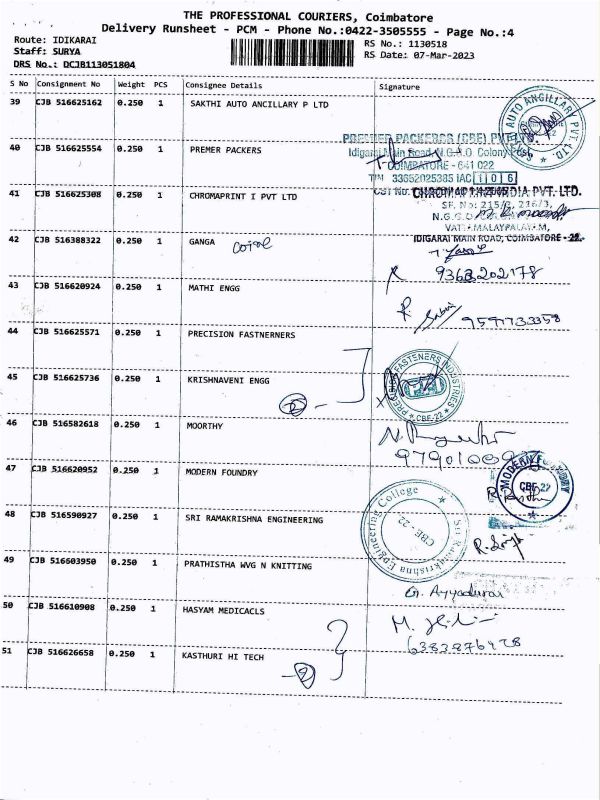 THE PROFESSIONAL COURIERS, Coimbatore
Delivery Runsheet - PCM - Phone No.:0422-3505555 - Page No.:4
Route: IDIKARAI
RS No.: 1130518
Staff: SURYA
RS Date: 07-Mar-2023
DRS No.: DCJB113051804
S No Consignment No Weight PCS Consignee Details Signature
39 CJB 516625162 0.250 1 SAKTHI AUTO ANCILLARY P LTD
AUTO ANCILLARY PVT. LTD.
40 CJB 516625554 0.250 1 PREMER PACKERS
PREMIER PACKEROR (CBE) PVT.
Idigarai Main Road, N.G.G.O. Colony
COIMBATORE - 641 022
TIN 33652025385 IAC 106
CST No.
41 CJB 516625308 0.250 1 CHROMAPRINT I PVT LTD
PVT. LTD.
SF. No: 215/2, 216/3,
N.G.G.O
VATTAMALAYPALAYAM,
IDIGARAI MAIN ROAD, COIMBATORE - 22.
42 CJB 516388322 0.250 1 GANGA
9363202178
43 CJB 516620924 0.250 1 MATHI ENGG
R.
9591733358
44 CJB 516625571 0.250 1 PRECISION FASTNERNERS
PRECISION FASTENERS INDUSTRIES
CBE-22
45 CJB 516625736 0.250 1 KRISHNAVENI ENGG
46 CJB 516582618 0.250 1 MOORTHY
47 CJB 516620952 0.250 1 MODERN FOUNDRY
MODERN FOUNDRY
CBE-22
48 CJB 516590927 0.250 1 SRI RAMAKRISHNA ENGINEERING
Sri Ramakrishna Engineering College
CBE - 22
49 CJB 516603950 0.250 1 PRATHISTHA WVG N KNITTING
50 CJB 516610908 0.250 1 HASYAM MEDICACLS
M.
51 CJB 516626658 0.250 1 KASTHURI HI TECH